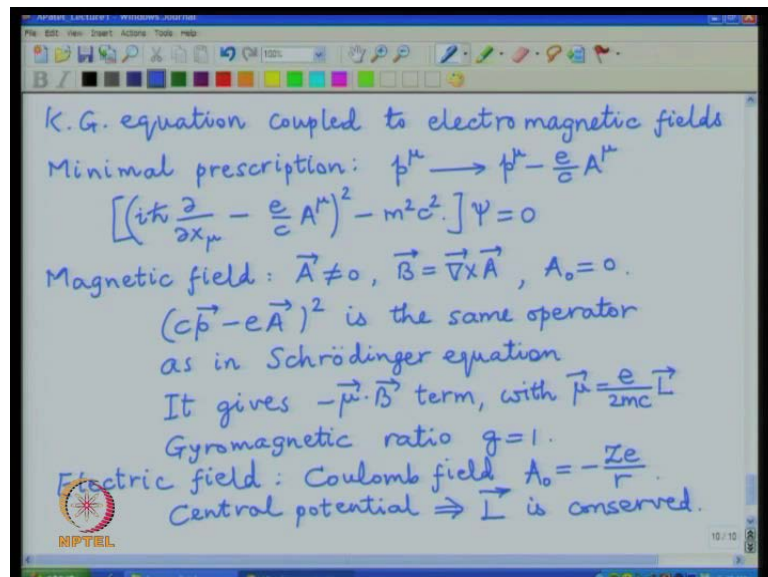 APatel_Lecture1 - Windows Journal
File Edit View Insert Actions Tools Help
100%
B I
K.G. equation coupled to electromagnetic fields
Minimal prescription: p^μ → p^μ - e/c A^μ
[(iħ ∂/∂x_μ - e/c A^μ)² - m²c².] Ψ = 0
Magnetic field: A⃗ ≠ 0, B⃗ = ∇⃗ × A⃗, A₀ = 0.
(cp⃗ - eA⃗)² is the same operator
as in Schrödinger equation
It gives -μ⃗·B⃗ term, with μ⃗ = e/2mc L⃗
Gyromagnetic ratio g = 1.
Electric field: Coulomb field A₀ = - Ze/r.
Central potential ⇒ L⃗ is conserved.
NPTEL
10 / 10